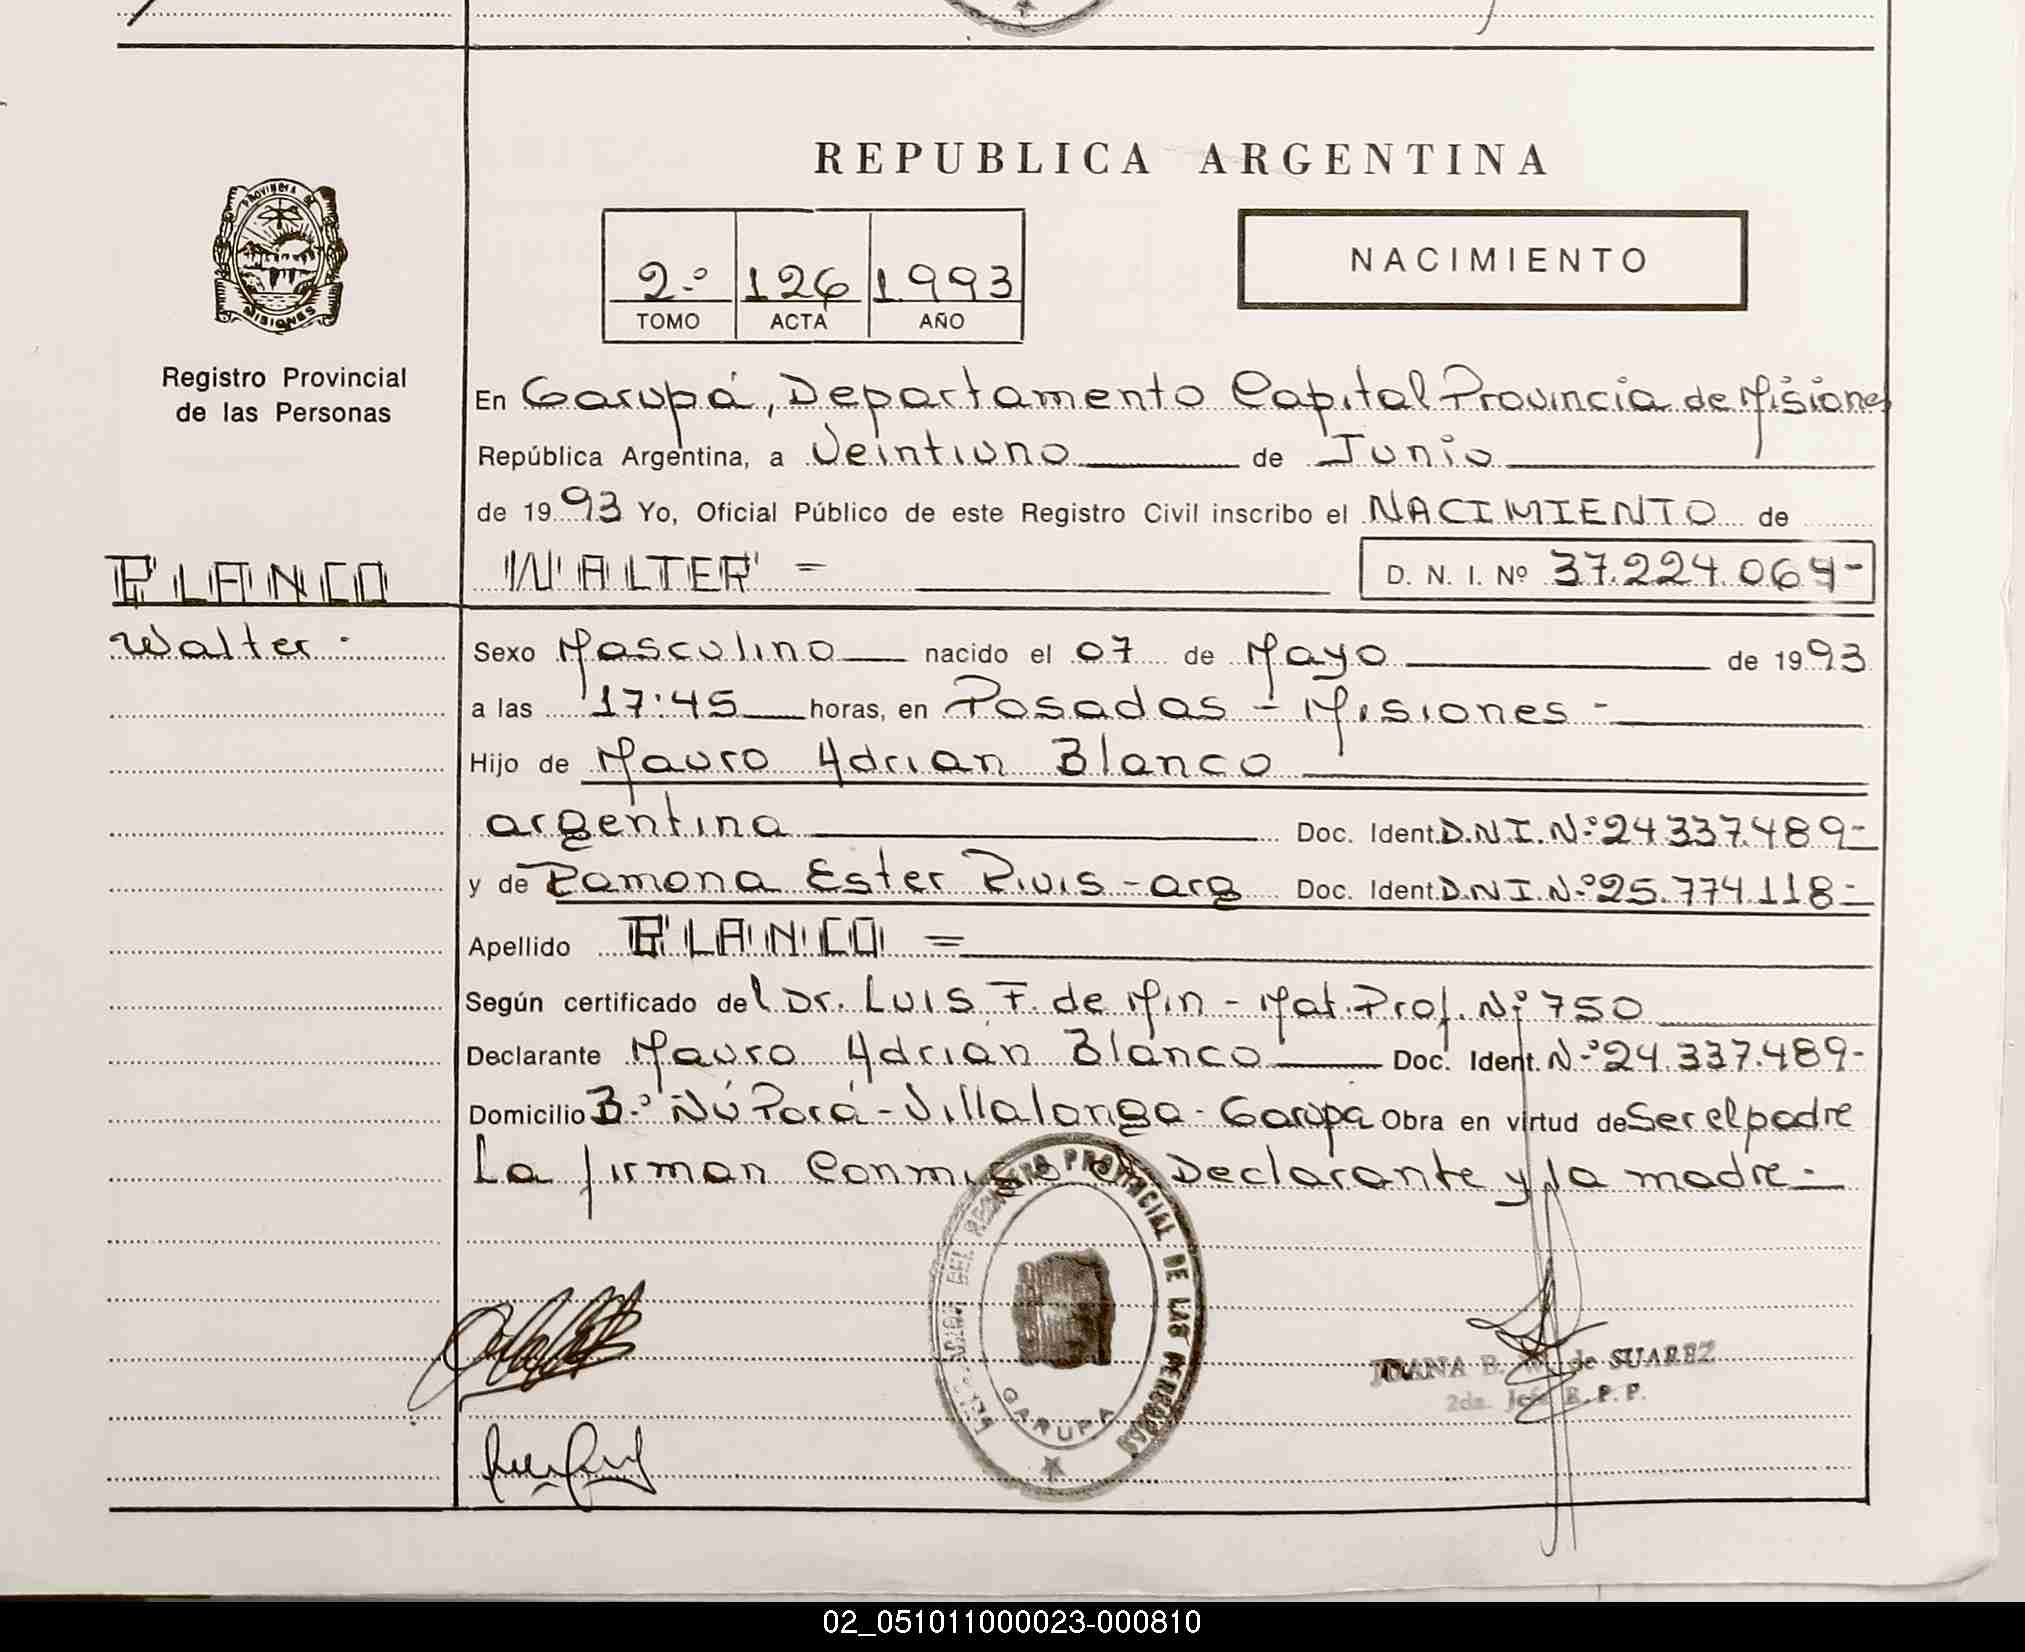 REPUBLICA ARGENTINA
PROVINCIA DE
MISIONES
2º 126 1993
TOMO ACTA AÑO
NACIMIENTO
Registro Provincial
de las Personas
En Garupá, Departamento Capital Provincia de Misiones
República Argentina, a Veintiuno de Junio
de 1993 Yo, Oficial Público de este Registro Civil inscribo el NACIMIENTO de
BLANCO
WALTER = D. N. I. Nº 37.224.064-
Walter.
Sexo Masculino nacido el 07 de Mayo de 1993
a las 17:45 horas, en Posadas - Misiones -
Hijo de Mauro Adrian Blanco
argentina Doc. Ident. D.N.I. Nº 24.337.489-
y de Ramona Ester Ruis - arg Doc. Ident. D.N.I. Nº 25.774.118-
Apellido BLANCO =
Según certificado del Dr. Luis F. de Min - Mat. Prof. Nº 750
Declarante Mauro Adrián Blanco Doc. Ident. Nº 24.337.489-
Domicilio Bº Ñú Porá - Villalonga - Garupá Obra en virtud de Ser el padre
La firman Conmigo el Declarante y la madre -
REGISTRO PROVINCIAL DE LAS PERSONAS
GARUPA
JUANA B. de SUAREZ
2da. Jefe R. P. P.
02_051011000023-000810